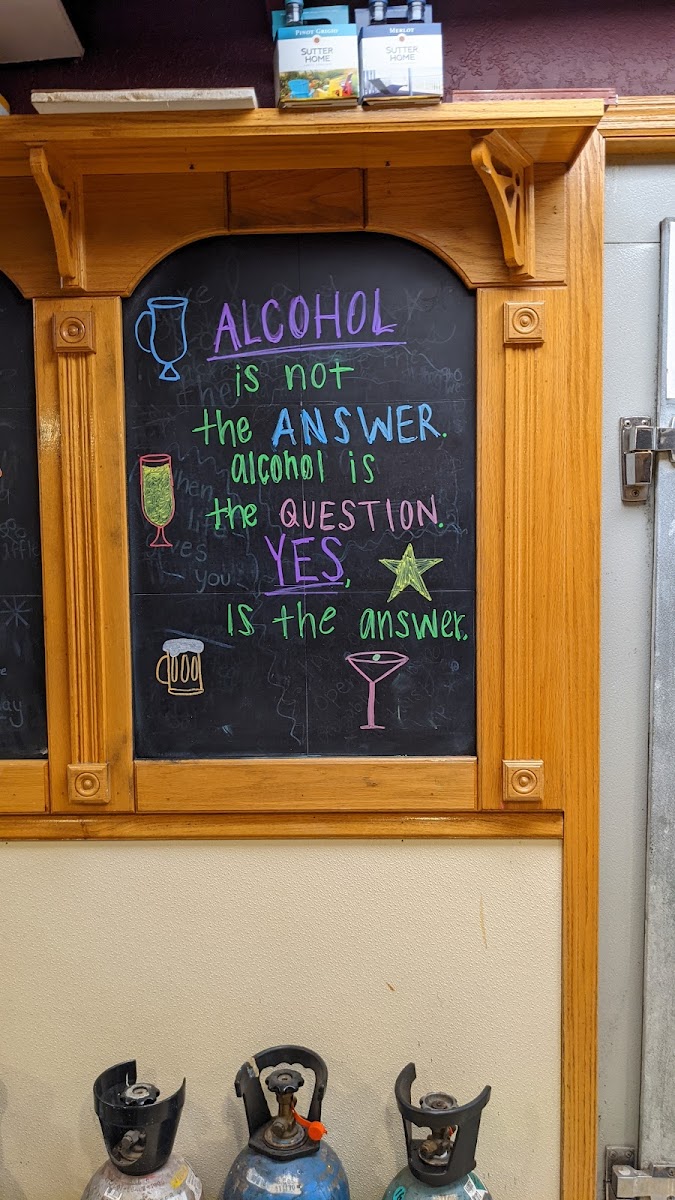 PINOT GRIGIO
SUTTER
HOME
MERLOT
SUTTER
HOME
ALCOHOL
is not
the ANSWER.
alcohol is
the QUESTION.
YES,
is the answer.